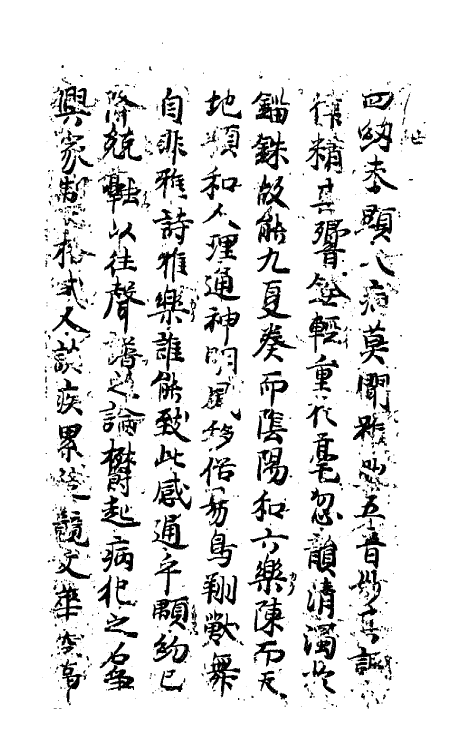 四紐未顯八病莫聞雖然五音妙其調
律精其響銓輕重於毫忽韻清濁於
錙銖故能九夏奏而陰陽和六樂陳而天
地順和人理通神明風移俗易鳥翔獸舞
自非雅詩雅樂誰能致此感通乎顒約已
降兢融以往聲譜之論欝起病犯之名
興家制格式人談疾累徒競文華空事